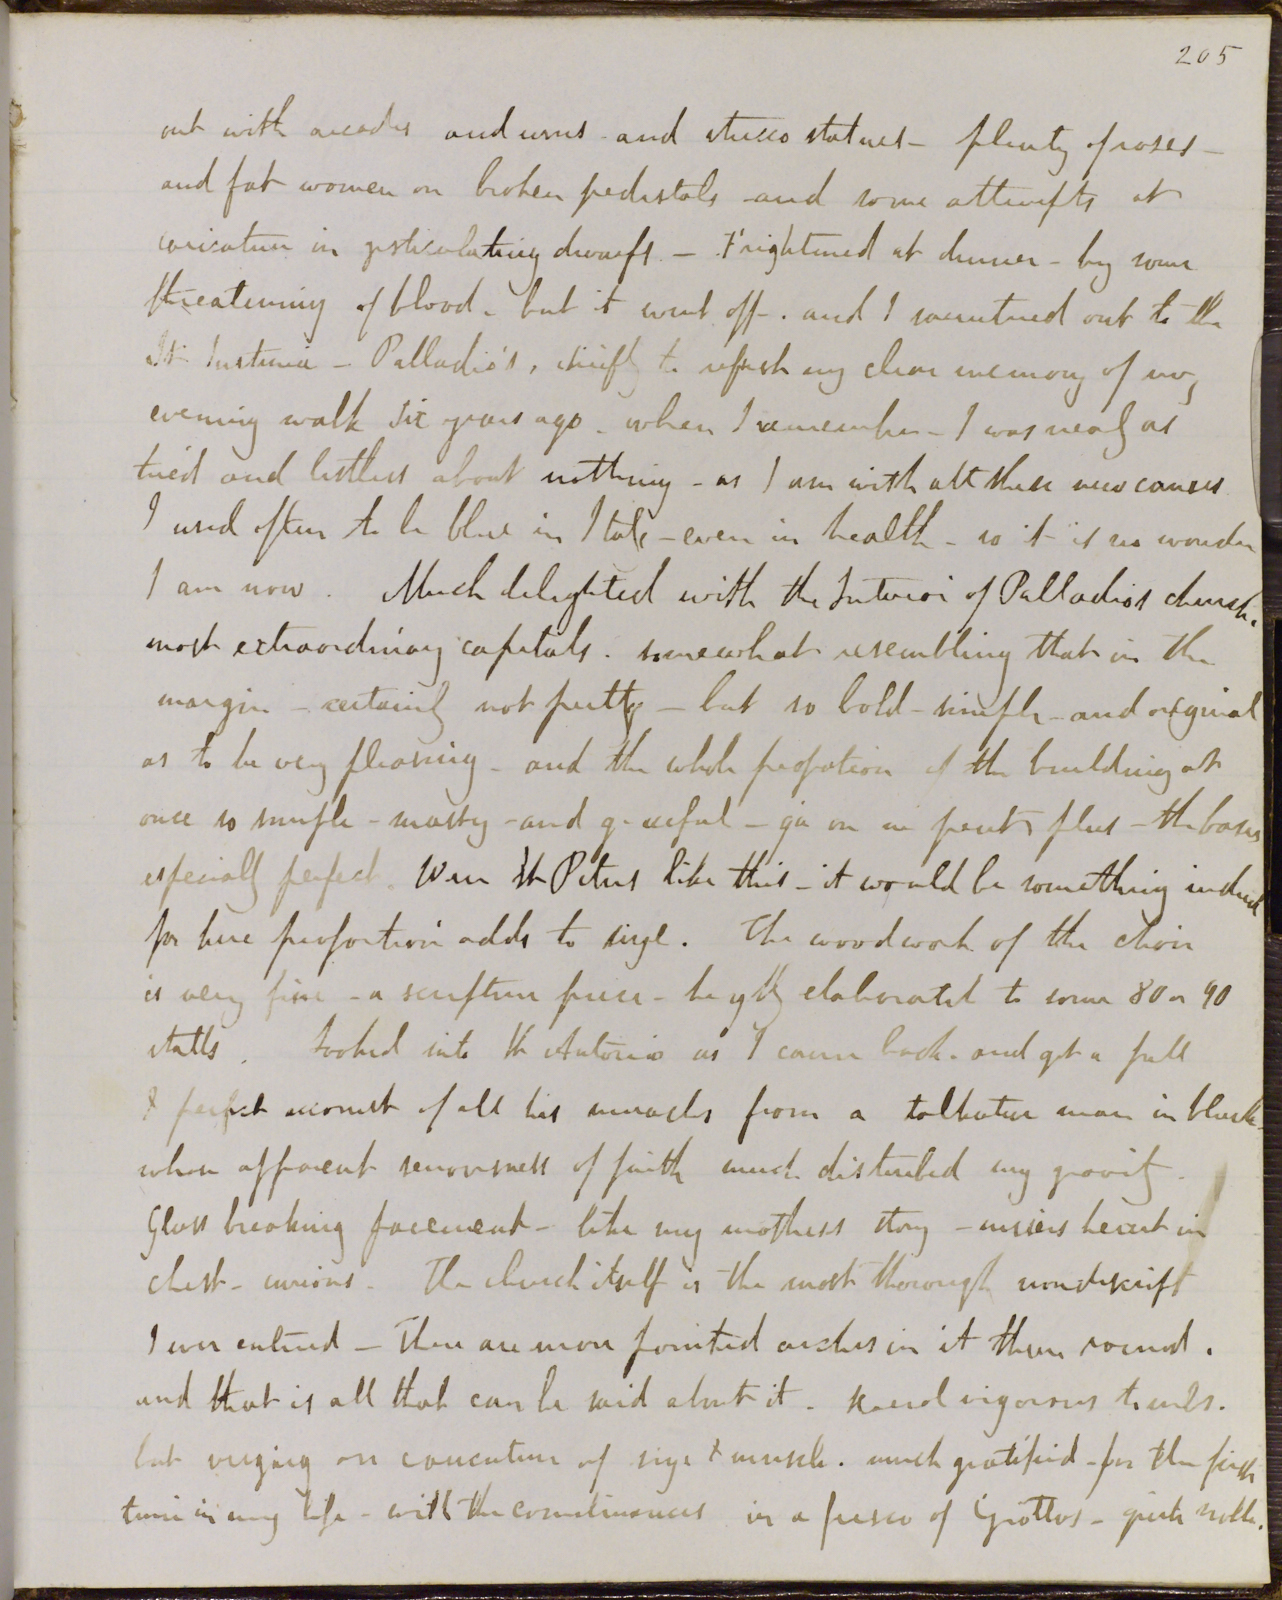 205
out with arcades and urns and stucco statues - plenty of roses -
and fat women on broken pedestals and some attempts at
caricature in gesticulating dwarfs - Frightened at dinner - by some
threatening of blood - but it went off -. and I sauntered out to the
St Justina - Palladio's, chiefly to refresh my clear memory of my
evening walk six years ago - when I remember - I was nearly as
tired and listless about nothing - as I am with all these new causes
I used often to be blue in Italy - even in health - so it is no wonder
I am now. Much delighted with the Interior of Palladios church.
most extraordinary capitals. somewhat resembling that in the
margin - certainly not pretty - but so bold - simple - and original
as to be very pleasing - and the whole propotion of the building at
once so simple - massy - and graceful - qu on ne peut plus - the bases
especially perfect. Were St Peters like this - it would be something indeed
for here proportion adds to size. The woodwork of the choir
is very fine - a scripture piece - highly elaborated to some 80 or 90
stalls. Looked into the Antonio as I came back. and got a full
& perfect account of all his miracles from a talkative man in black -
whose apparent seriousness of faith much disturbed my gravity.
Glass breaking pavement - like my mothers story - misers heart in
chest - curious. The church itself is the most thorough nondescript
I ever entered - There are more pointed arches in it than round.
and that is all that can be said about it. Several vigorous tombs.
but verging on caricature of size & muscle. much gratified - for the first
time in my life - with the countenances in a fresco of Giottos - quite noble.